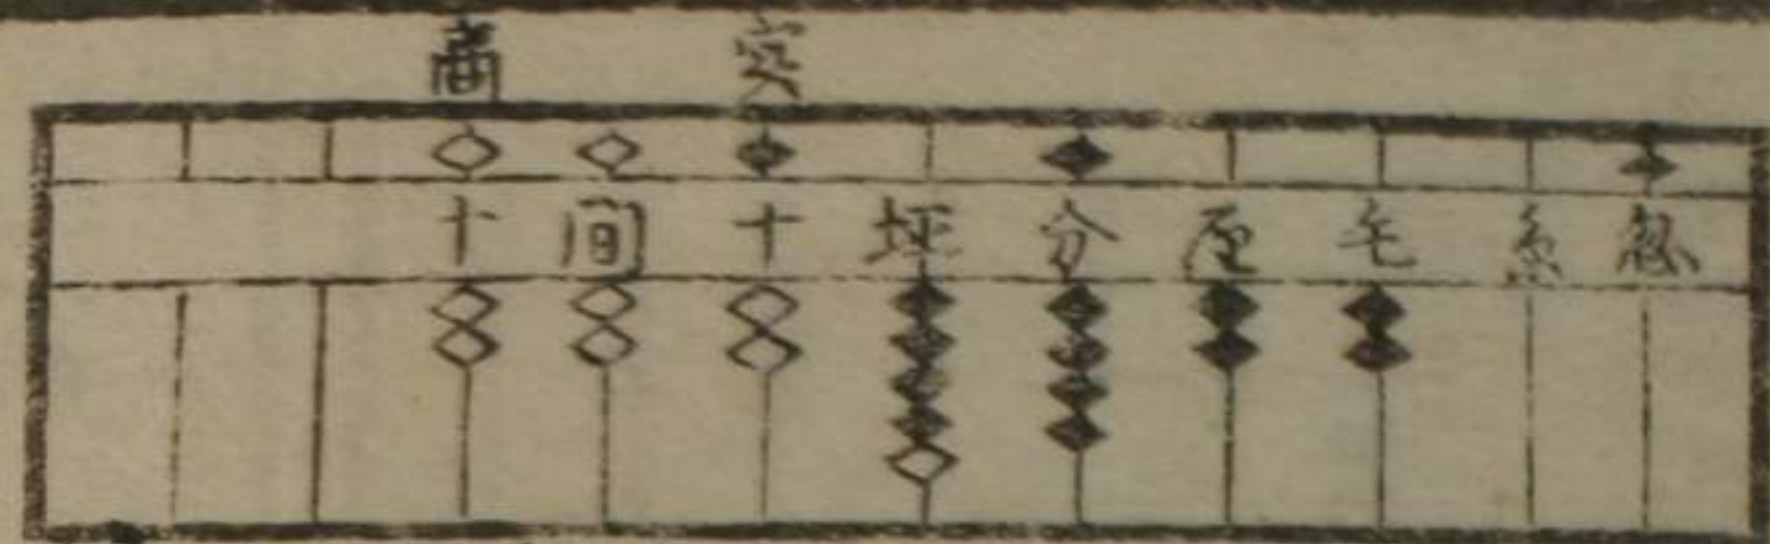 商 実
十 間 十 坪 分 厘 毛 糸 忽